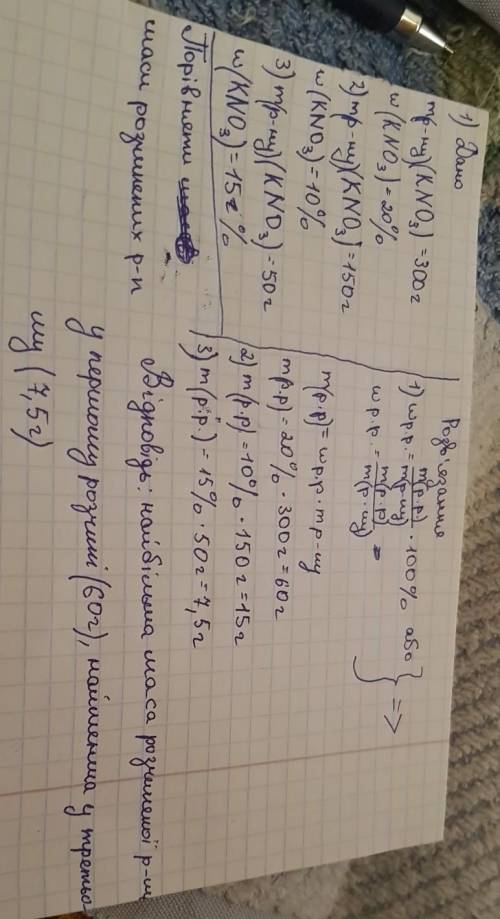 1) Дано
m(р-ну)(KNO₃) = 300г
w(KNO₃) = 20%
2) m(р-ну)(KNO₃) = 150г
w(KNO₃) = 10%
3) m(р-ну)(KNO₃) = 50г
w(KNO₃) = 15%
Порівняти
маси розчинених р-н
Розв'язання
1) w р.р. = m(р.р)/m(р-ну) · 100% або
w р.р. = m(р.р)/m(р-ну) =>
m(р.р) = w р.р · m р-ну
m(р.р) = 20% · 300г = 60г
2) m(р.р) = 10% · 150г = 15г
3) m(р.р.) = 15% · 50г = 7,5г
Відповідь: найбільша маса розчиненої р-ни
у першому розчині (60г), найменша у третьо
му (7,5г)